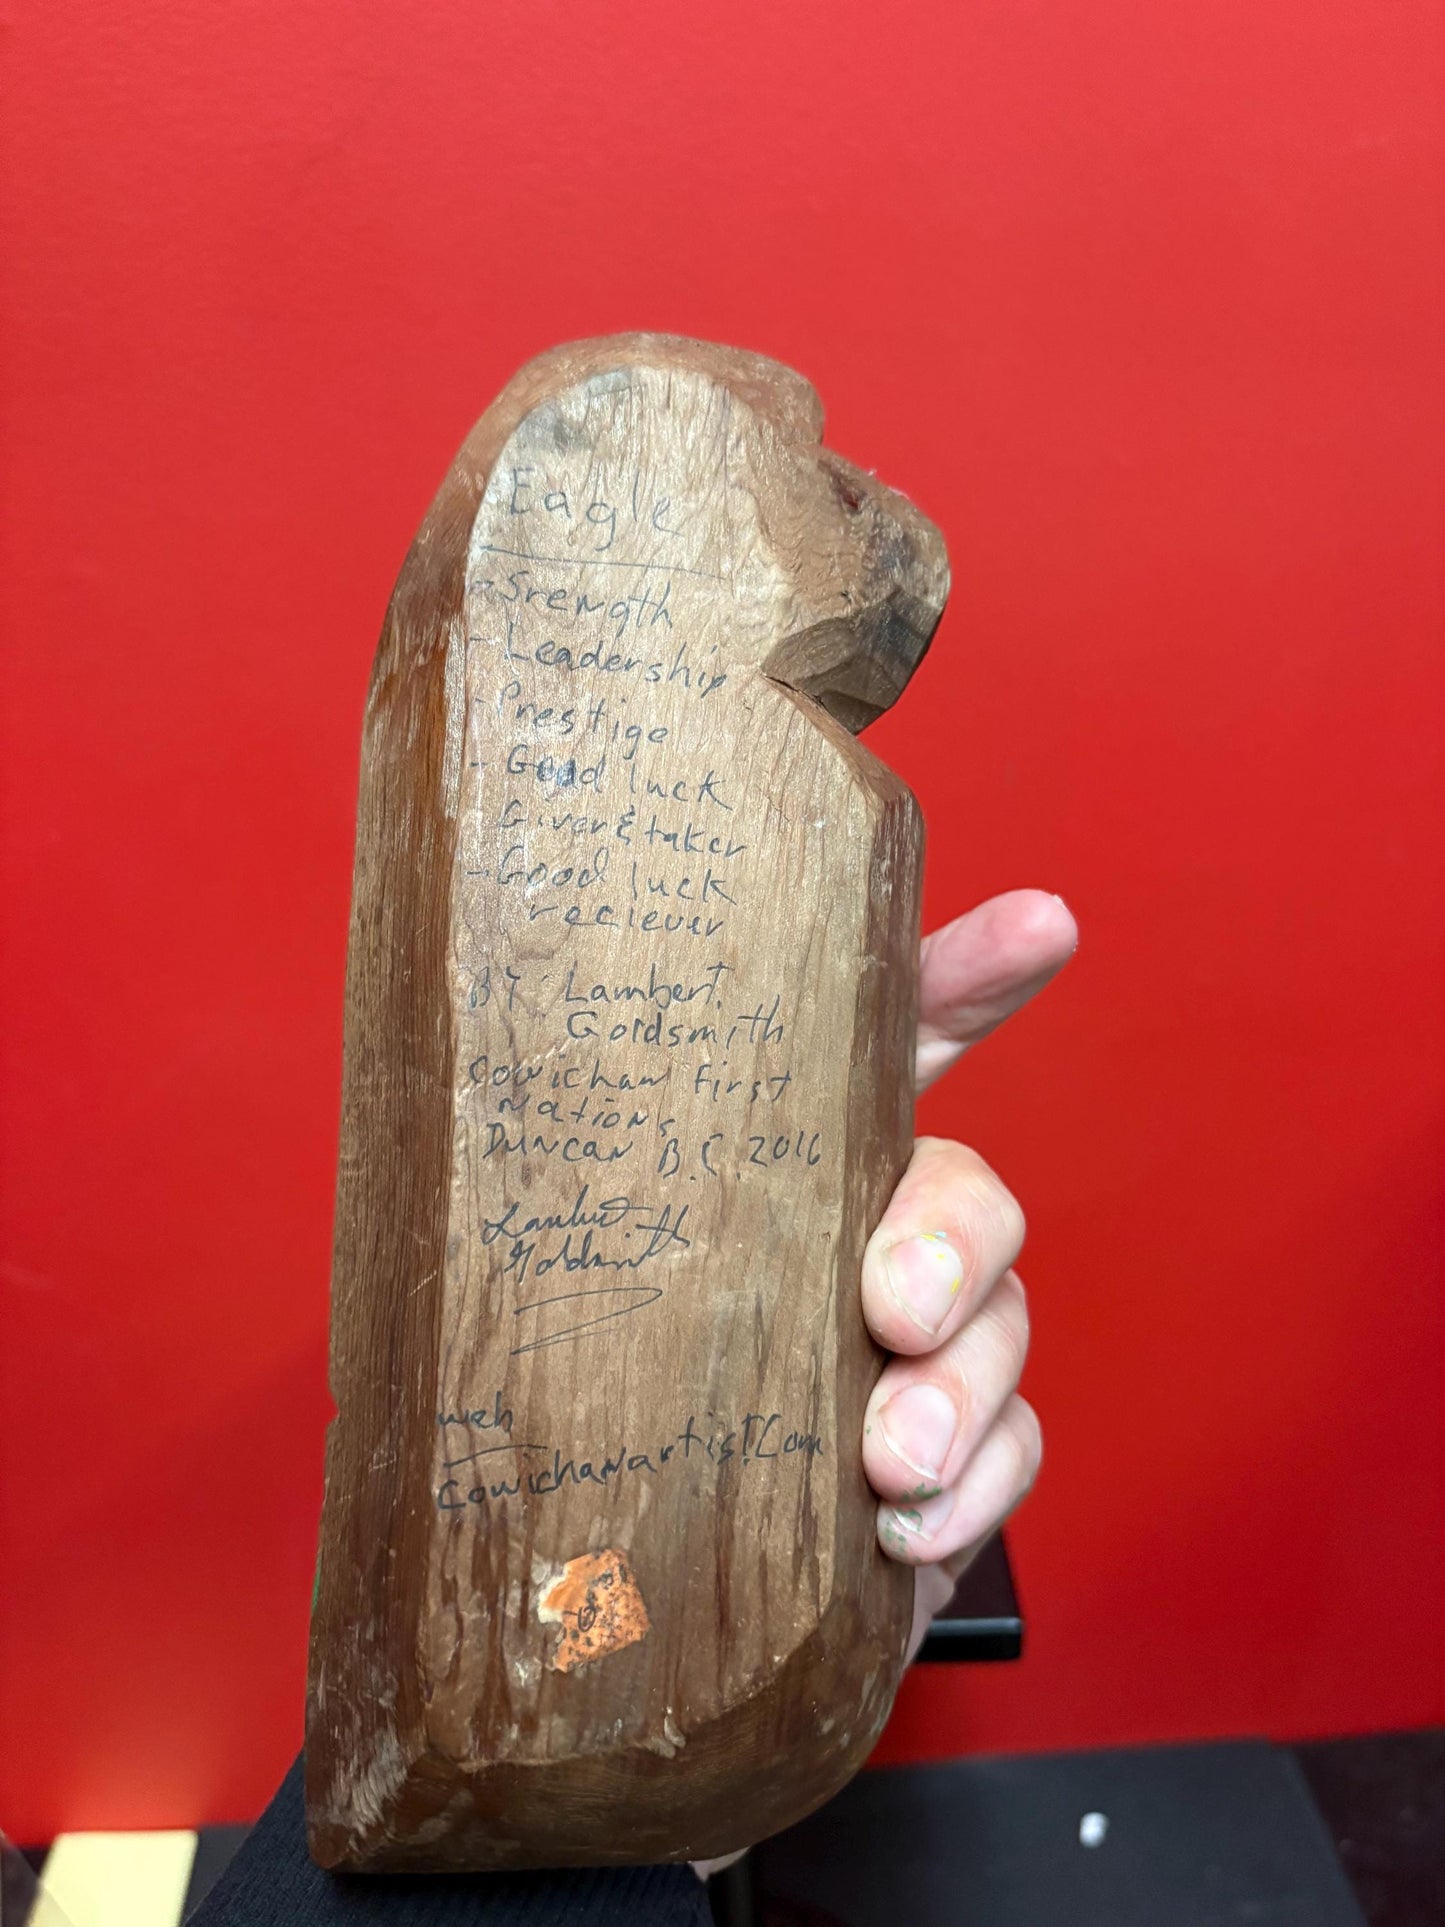 Eagle
- Srength
- Leadership
- Prestige
- Good luck
Giver & taker
- Good luck
reciever
BY: Lambert
Goldsmith
Cowichan First
Nations
Duncan B.C. 2016
Lambert
Goldsmith
web
Cowichanartist.Com